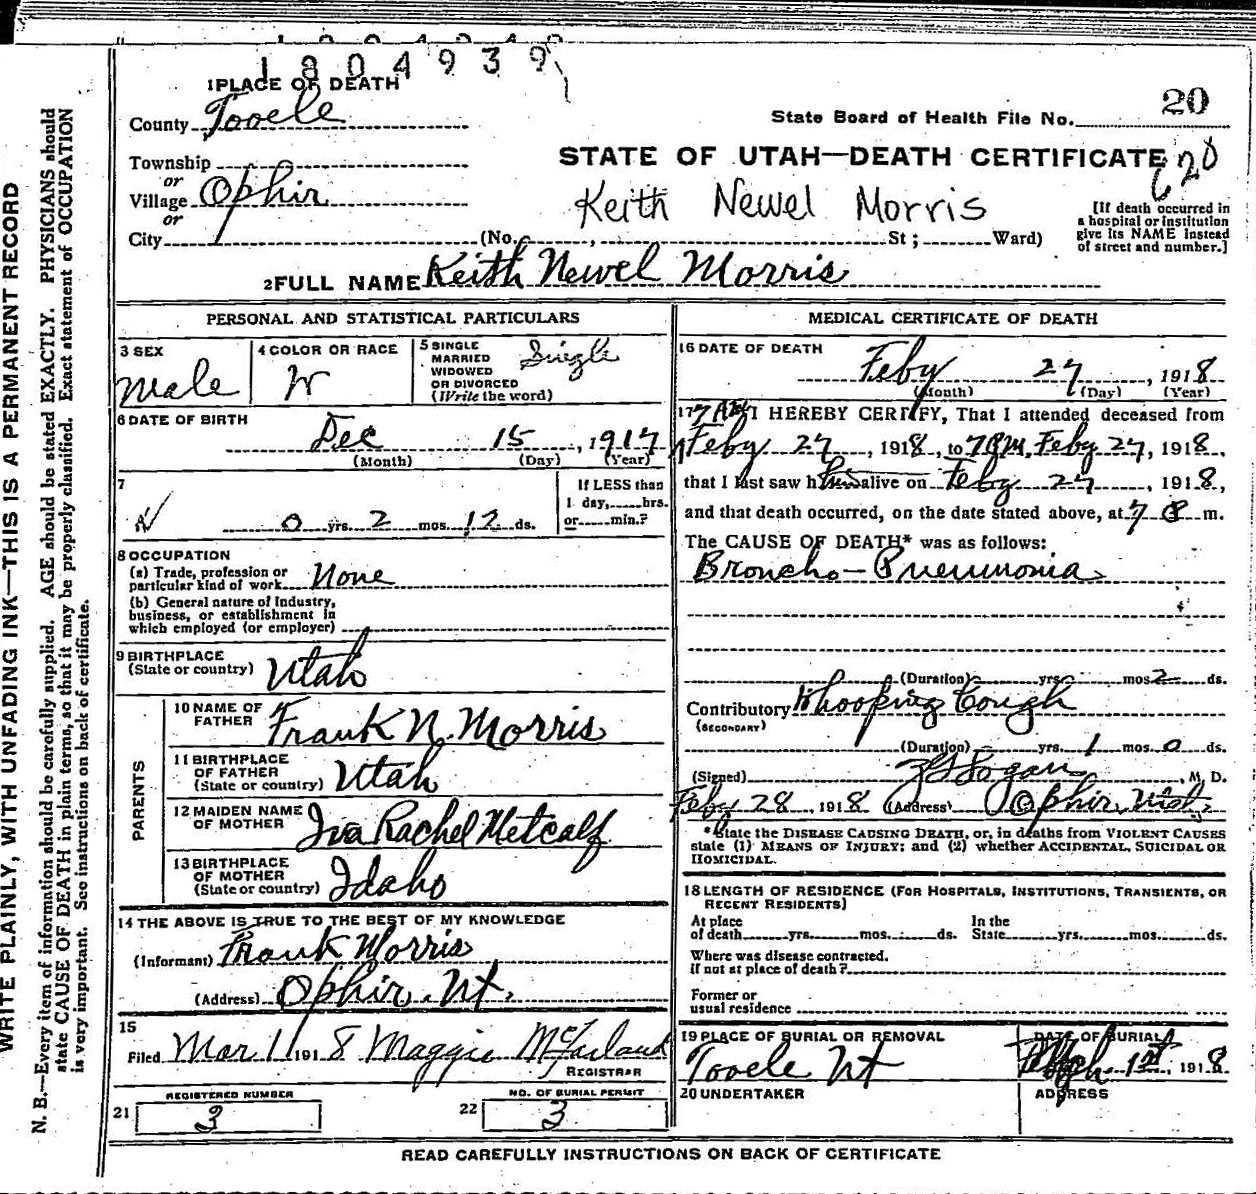 1804939
1 PLACE OF DEATH
County Tooele
State Board of Health File No. 20
Township
or
Village Ophir
or
City (No. , St ; Ward)
STATE OF UTAH—DEATH CERTIFICATE
620
Keith Newel Morris
[If death occurred in
a hospital or institution
give its NAME instead
of street and number.]
2 FULL NAME Keith Newel Morris
PERSONAL AND STATISTICAL PARTICULARS
3 SEX
Male
4 COLOR OR RACE
W
5 SINGLE
MARRIED
WIDOWED
OR DIVORCED
(Write the word)
Single
6 DATE OF BIRTH
Dec 15, 1917
(Month) (Day) (Year)
7
0 yrs. 2 mos. 12 ds.
If LESS than
1 day, hrs.
or min.?
8 OCCUPATION
(a) Trade, profession or
particular kind of work None
(b) General nature of Industry,
business, or establishment in
which employed (or employer)
9 BIRTHPLACE
(State or country) Utah
PARENTS
10 NAME OF
FATHER Frank N. Morris
11 BIRTHPLACE
OF FATHER
(State or country) Utah
12 MAIDEN NAME
OF MOTHER Iva Rachel Metcalf
13 BIRTHPLACE
OF MOTHER
(State or country) Idaho
14 THE ABOVE IS TRUE TO THE BEST OF MY KNOWLEDGE
(Informant) Frank Morris
(Address) Ophir, Ut,
15
Filed Mar 1 1918 Maggie McFarland
REGISTRAR
REGISTERED NUMBER
21 3
NO. OF BURIAL PERMIT
22 3
MEDICAL CERTIFICATE OF DEATH
16 DATE OF DEATH
Feby 27, 1918
(Month) (Day) (Year)
17 7 AM I HEREBY CERTIFY, That I attended deceased from
Feby 27, 1918, to 7 P.M. Feby 27, 1918.
that I last saw him alive on Feby 27, 1918,
and that death occurred, on the date stated above, at 7 P m.
The CAUSE OF DEATH* was as follows:
Broncho-Pneumonia
(Duration) yrs. mos. 2 ds.
Contributory Whooping Cough
(SECONDARY)
(Duration) — yrs. 1 mos. 0 ds.
(Signed) Logan, M. D.
Feby 28 1918 (Address) Ophir, Utah,
*State the DISEASE CAUSING DEATH, or, in deaths from VIOLENT CAUSES
state (1) MEANS OF INJURY; and (2) whether ACCIDENTAL, SUICIDAL OR
HOMICIDAL.
18 LENGTH OF RESIDENCE (FOR HOSPITALS, INSTITUTIONS, TRANSIENTS, OR
RECENT RESIDENTS)
At place
of death yrs. mos. ds.
In the
State yrs. mos. ds.
Where was disease contracted.
if not at place of death?
Former or
usual residence
19 PLACE OF BURIAL OR REMOVAL
Tooele Ut
DATE OF BURIAL
1st, 1918
20 UNDERTAKER
ADDRESS
READ CAREFULLY INSTRUCTIONS ON BACK OF CERTIFICATE
WRITE PLAINLY, WITH UNFADING INK—THIS IS A PERMANENT RECORD
N. B.—Every item of information should be carefully supplied. AGE should be stated EXACTLY. PHYSICIANS should
state CAUSE OF DEATH in plain terms, so that it may be properly classified. Exact statement of OCCUPATION
is very important. See instructions on back of certificate.